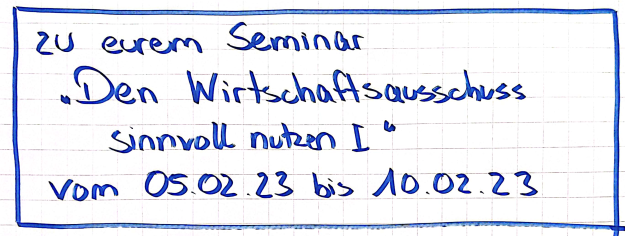 zu eurem Seminar
„Den Wirtschaftsausschuss
sinnvoll nutzen I“
vom 05.02.23 bis 10.02.23